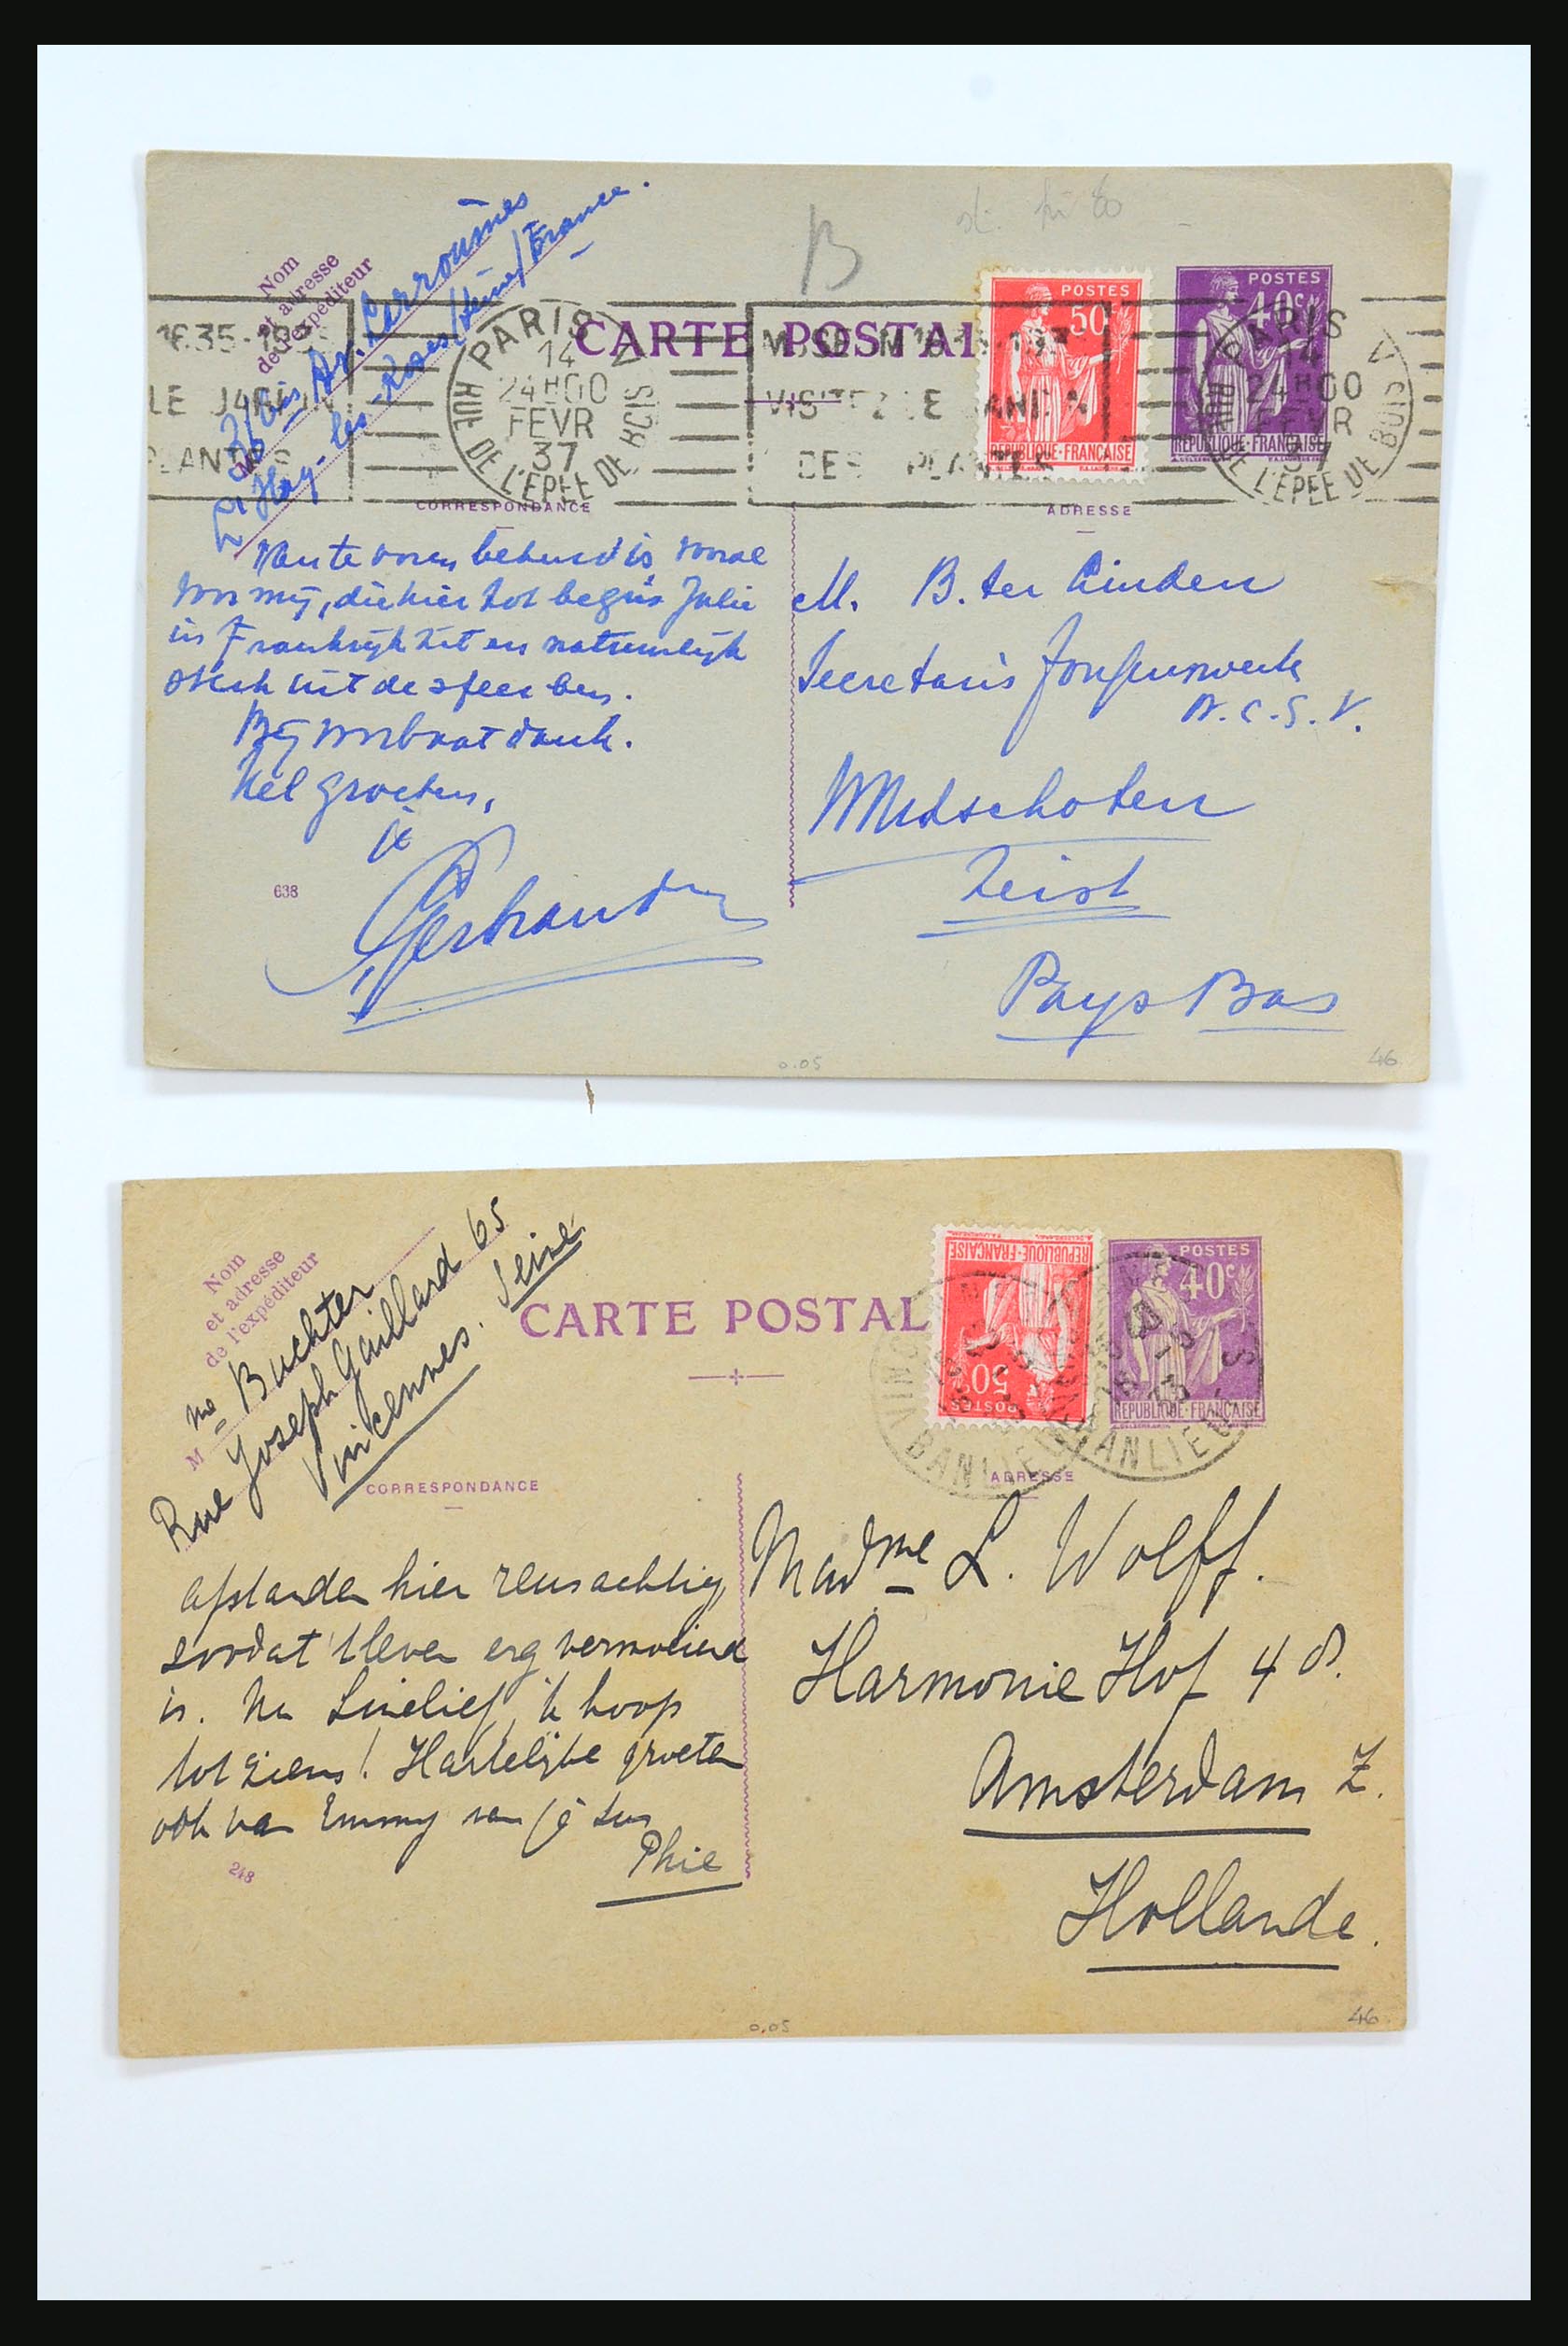 Nom
et adresse
de l'expéditeur
Av. Larroumès
L'Hay-les-Roses/Seine/France.
B
CARTE POSTAL
1635-193
LE JARDIN
PLANTES
PARIS V
14
24H00
FEVR
37
RUE DE L'EPEE DE BOIS
MUSEUM 1635-193
VISITEZ LE JARDIN
DES PLANTES
POSTES
50c
REPUBLIQUE-FRANÇAISE
POSTES
40c
REPUBLIQUE-FRANÇAISE
PARIS V
14
24H00
FEVR
37
RUE DE L'EPEE DE BOIS
CORRESPONDANCE
ADRESSE
voor mij, die hier tot begin Julie
in Frankrijk zit en natuurlijk
sterk uit de sfeer ben.
Bij voorbaat dank.
Hel groeten,
je
638
M. B. ter Linden
Secretaris Jongenswerk
N.C.S.V.
Woudschoten
Zeist
Pays Bas
0.05
46
Nom
et adresse
de l'expéditeur
M
Me Buchter
Rue Joseph Gaillard 65
Vincennes. Seine
CARTE POSTAL
POSTES
50c
REPUBLIQUE-FRANÇAISE
POSTES
40c
REPUBLIQUE-FRANÇAISE
BANLIEUE
BANLIEUE
CORRESPONDANCE
ADRESSE
afstanden hier reusachtig,
zoodat 't leven erg vermoeiend
is. Nu Linelief, ik hoop
tot ziens! Hartelijke groeten
ook van Emmy van je zus
Phie
248
Madme L. Wolff.
Harmonie Hof 48.
Amsterdam Z.
Hollande.
0,05
46